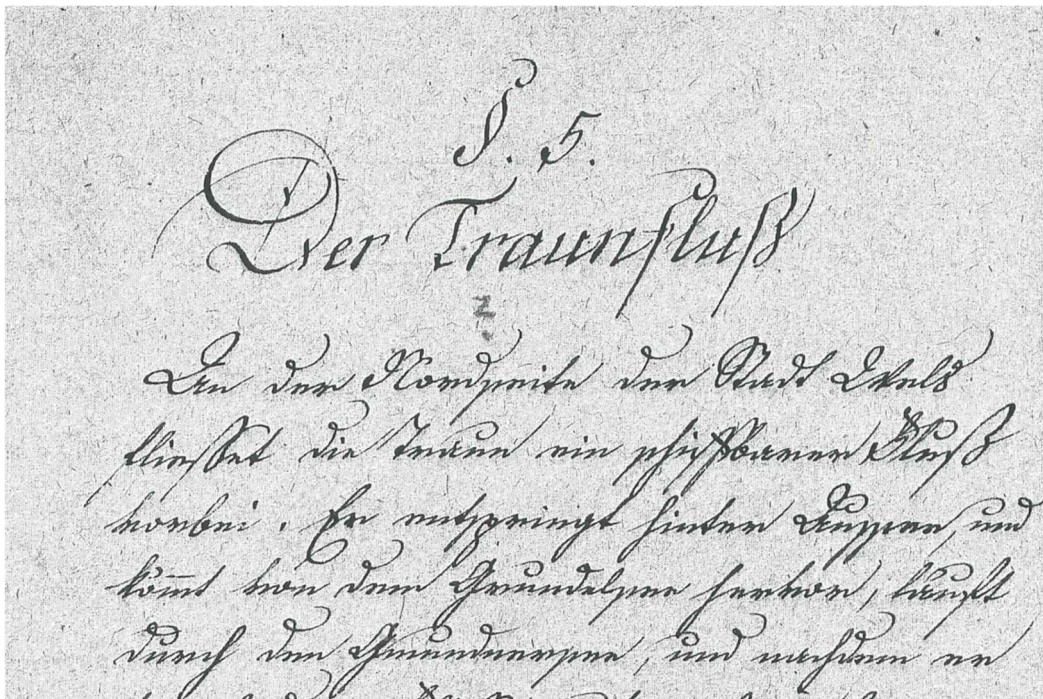 §. 5.
Der Traunfluß
An der Nordseite der Stadt Wels
fliesset die Traun ein schiffbarer Fluß
vorbei. Er entspringt hinter Aussee, und
köm̅t von dem Grundelsee hervor, lauft
durch den Gmundnersee, und nachdem er